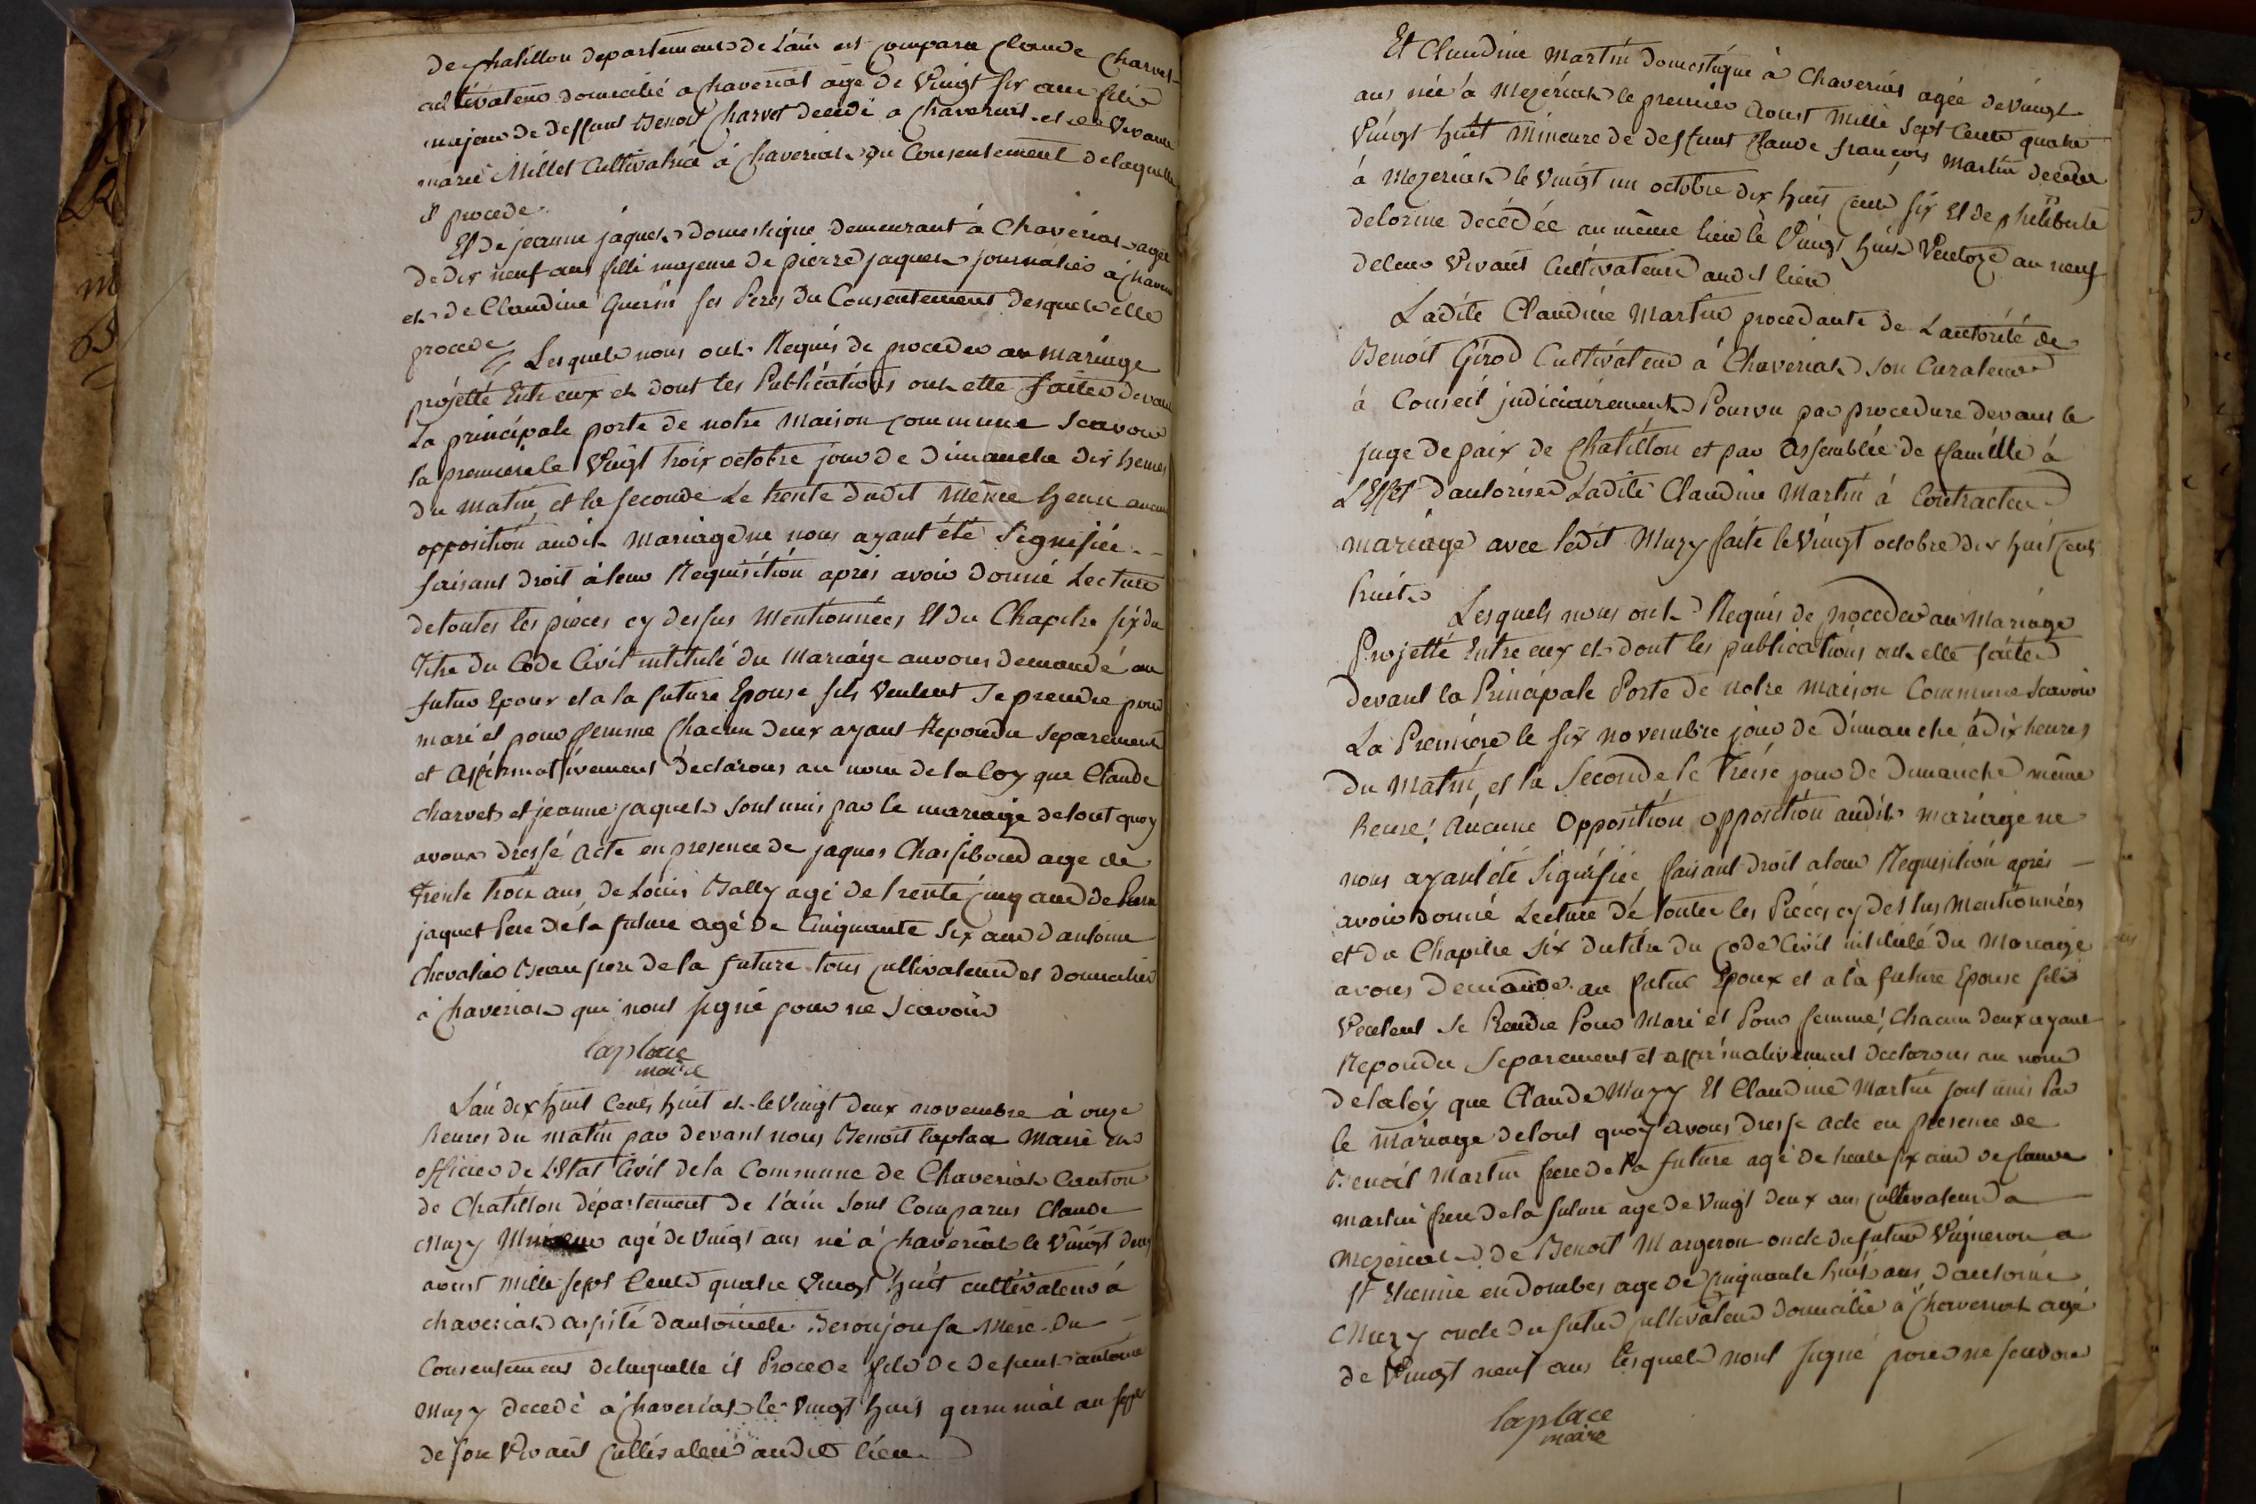 de chatillon departement de L'ain est comparu Claude Charvet
cultivateur domicilié a chaveriat age de Vingt six ans fils
majeur de deffunt Benoit Charvet decedé a chaveriat et de Vivante
marie Millet Cultivatrice à Chaveriat du Consentement de laquelle
il procede
Et de jeanne jaquet domestique demeurant à Chaveriat agée
de dix neuf ans fille majeure de pierre jaquet journalier à chaveriat
et de Claudine Guerin ses Peres du Consentement desquels elle
procede
Lesquels nous ont Requis de proceder au mariage
projetté Entre eux et dont les Publications ont etté faites devant
La principale porte de notre Maison commune scavoir
la premiere le Vingt trois octobre jour de dimanche dix heures
du matin et la seconde Le trente dudit Même heure aucune
opposition audit Mariage ne nous ayant été Signifiée
faisant droit à leur Requisition apres avoir donné Lecture
de toutes les pièces cy dessus Mentionnées Et du Chapitre six du
Titre du Code Civil intitulé du Mariage avons demandé au
futur Epoux et a la future Epouse sils Veulent se prendre pour
mari et pour femme Chacun deux ayant Repondu separement
et Affirmativement Declarons au nom de la loy que Claude
charvet et jeanne jaquet sont unis par le mariage de tout quoy
avons dressé Acte en presence de jaques Chassiboud age de
Trente trois ans, de Louis Bally agé de trente cinq ans de Pierre
jaquet Pere de la future agé de Cinquante six ans d'antoine
Chevalier Beau frere de la future tous cultivateurs et domiciliés
à Chaveriat qui nont signé pour ne scavoir
laplace
maire
L'an dix huit Cents huit et le Vingt deux novembre à onze
heures du matin par devant nous Benoit laplace Maire et
officier de L'Etat Civil de la Commune de Chaveriat Canton
de Chatillon département de L'ain sont Comparus Claude
Muzy agé de Vingt ans né à Chaveriat le Vingt deux
aoust mille sept Cents quatre Vingt huit cultivateur à
chaveriat assisté d'antoinette Beroujon sa Mere du
Consentement de laquelle il Procede fils de defunt antoine
Muzy decedé à Chaveriat le Vingt huit germinal an sept
de son Vivant Cultivateur audit lieu
Et Claudine Martin Domestique à Chaveriat agée de Vingt
ans née à Mezériat le premier Aoust Mille sept Cents quatre
Vingt huit Mineure de deffunt Claude françois Martin decedé
à Mezeriat le Vingt un octobre dix huit cent six Et de philiberte
delorme decédée au même lieu le Vingt huit Ventoze an neuf
de leur Vivant Cultivateurs audit lieu
Ladite Claudine Martin procedante de L'autorité de
Benoit Girod Cultivateur à Chaveriat son Curateur
à Conseil judiciairement Pourvu par procedure devant le
juge de paix de Chatillon et par Assemblée de famille à
L'Effet d'autoriser Ladite Claudine Martin à Contracter
mariage avec ledit Muzy faite le Vingt octobre dix huit cent
huit
Lesquels nous ont Requis de proceder au Mariage
Projetté Entre eux et dont les publications ont etté faites
devant la Principale Porte de notre Maison Commune scavoir
La Premiere le six novembre jour de Dimanche à dix heures
Du Matin, et la Seconde le Treise jour de Dimanche même
heure! Aucune Opposition opposition audit mariage ne
nous ayant été Signifiée faisant droit a leur Requisition après
avoir donné Lecture de toutes les Pièces cy dessus Mentionnées
et du Chapitre six du titre du Code Civil intitulé du Mariage
avons Demandé au futur Epoux et a la future Epouse sils
Veulent se Prendre Pour Mari et Pour femme! Chacun deux ayant
Repondu Separement et affirmativement declarons au nom
de la loy que Claude Muzy Et Claudine Martin sont unis Par
le Mariage de tout quoy avons dressé acte en presence de
Benoit Martin frere de la future agé de trente six ans de Claude
martin frere de la future age de Vingt deux ans cultivateurs a
Mezeriat de Benoit Margeron oncle du futur Vigneron a
St Etienne en dombes age de cinquante huit ans d'antoine
Muzy oncle du futur cultivateur domicilié à Chaveriat agé
de Vingt neuf ans lesquels nont signé pour ne scavoir
laplace
maire